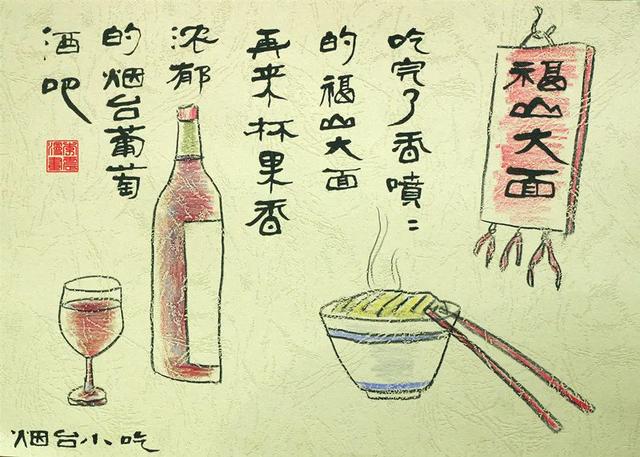 福山大面
吃完了香噴:
的福山大面
再来杯果香
浓郁
的烟台葡萄
酒吧
烟台小吃